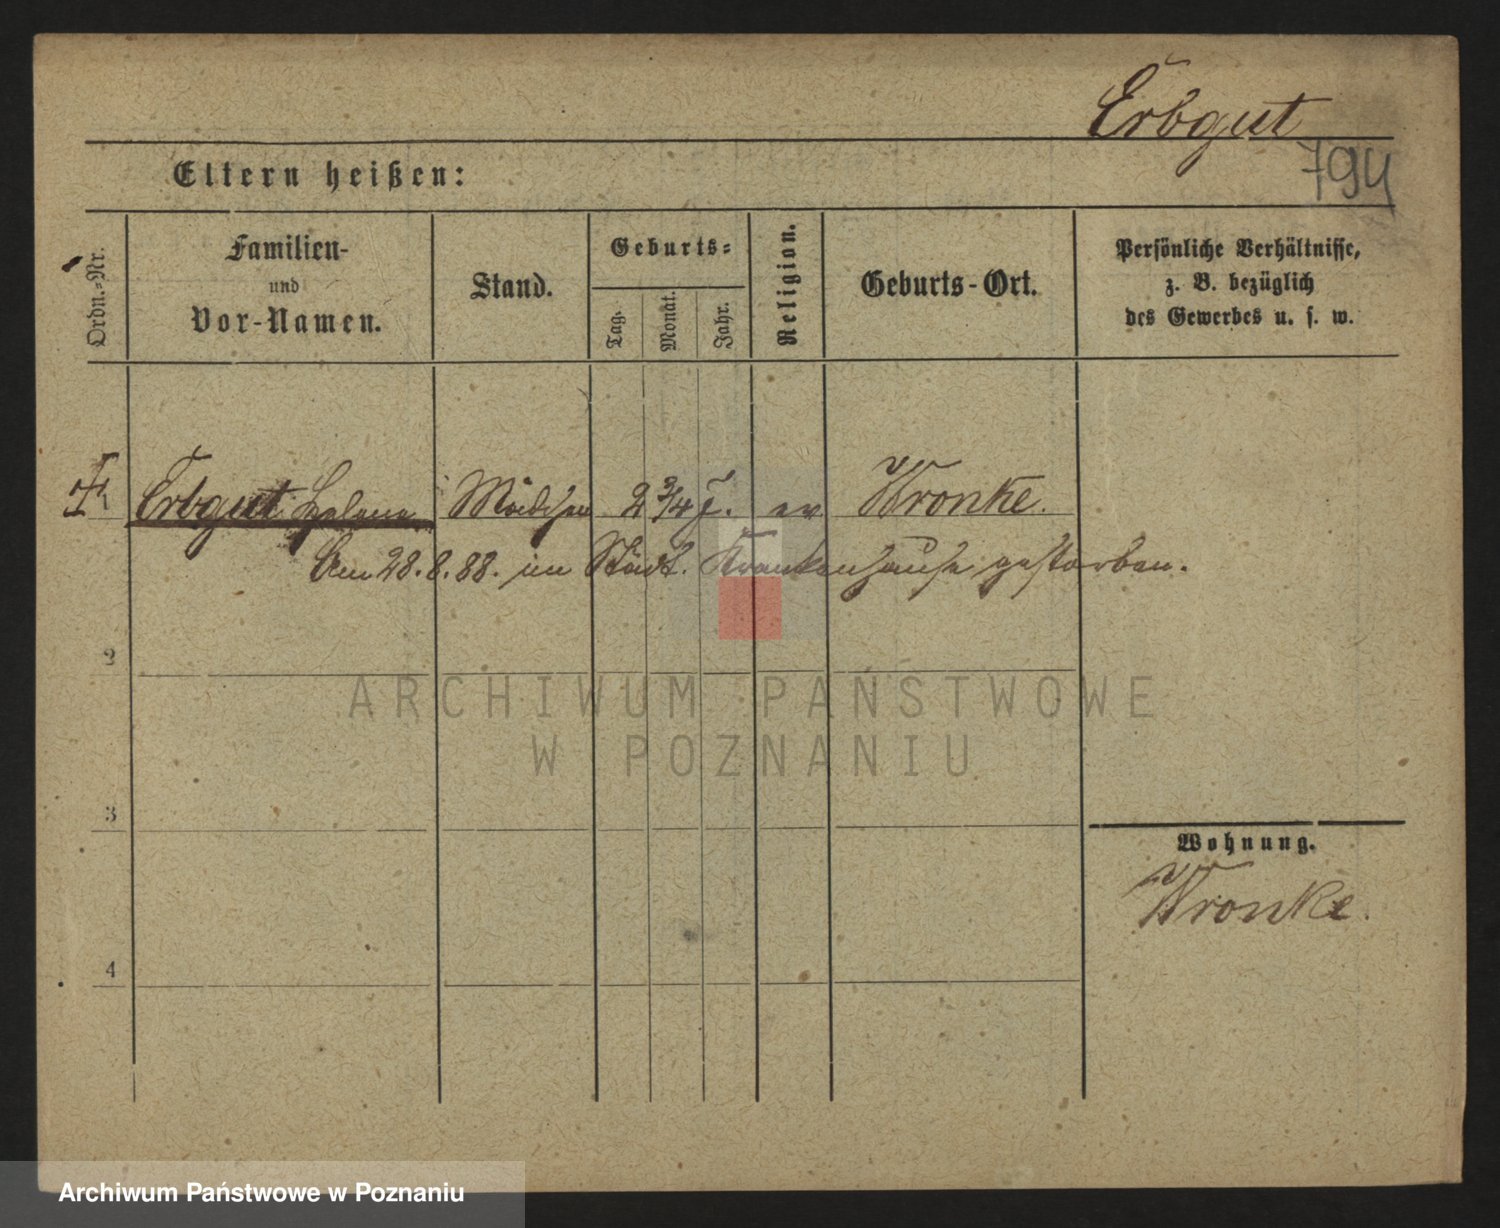 Erbgut
794
Eltern heißen:
Ordn.-Nr.
Familien-
und
Vor-Namen.
Stand.
Geburts-
Tag.
Monat.
Jahr.
Religion.
Geburts-Ort.
Persönliche Verhältnisse,
z. B. bezüglich
des Gewerbes u. s. w.
1 Erbgut Helene Mädchen 2 3/4 J. ev Wronke.
Am 28.8.88. im Städt. Krankenhause gestorben.
2
ARCHIWUM PAŃSTWOWE
W POZNANIU
3
Wohnung.
Wronke.
4
Archiwum Państwowe w Poznaniu